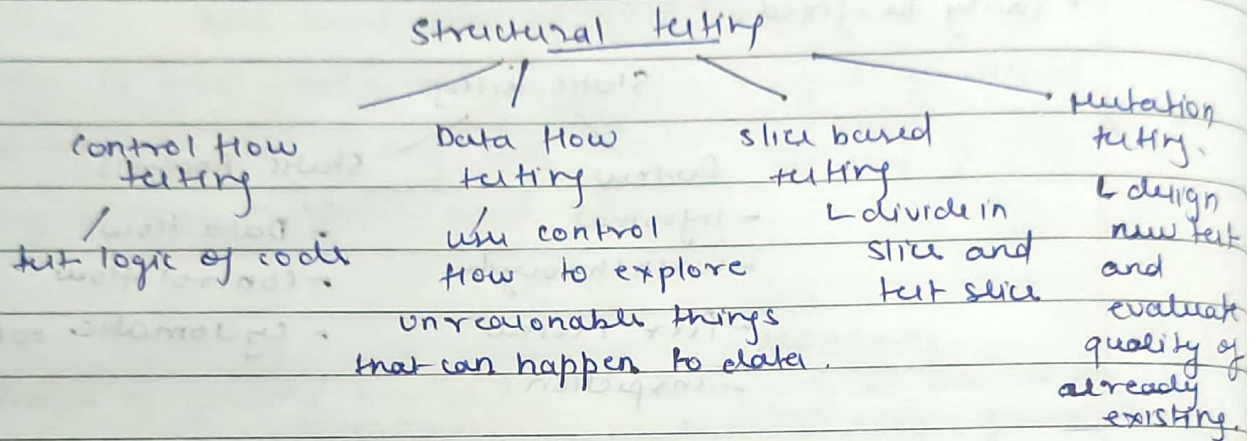 Structural testing
Control flow
testing
test logic of code
Data flow
testing
use control
flow to explore
unreasonable things
that can happen to data.
slice based
testing
divide in
slice and
test slice
Mutation
testing.
design
new test
and
evaluate
quality of
already
existing.